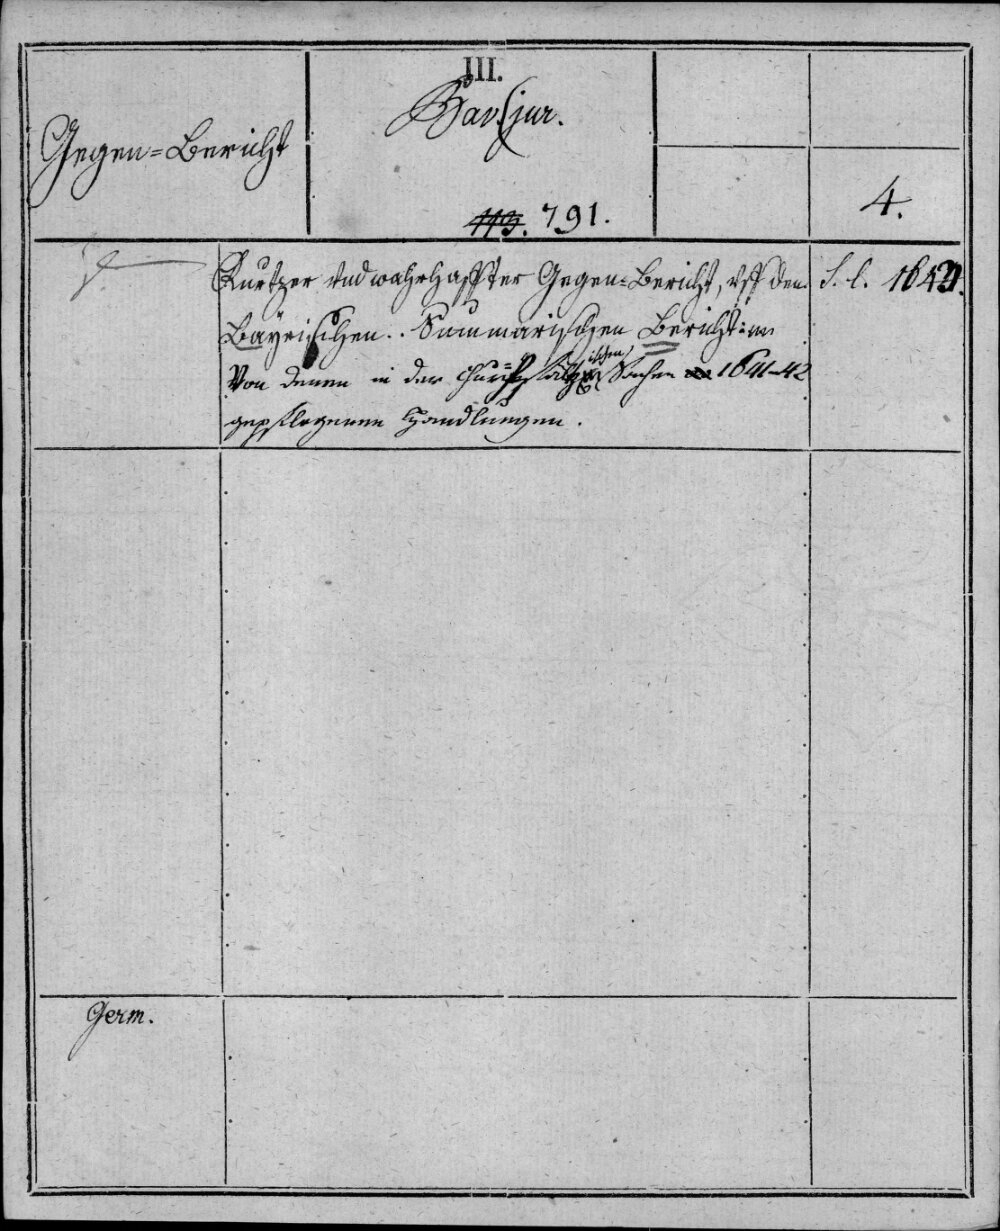 III.
Bav. jur.
Gegen=Bericht
4.
113. 791.
Kurtzer vnd wahrhaffter Gegen=Bericht, vff den S. l. 1643.
Bayrischen.. Summarischen Bericht:
Von denen in der Churpfältzischen Sachen 1641-42
gepflogenen Handlungen.
Germ.